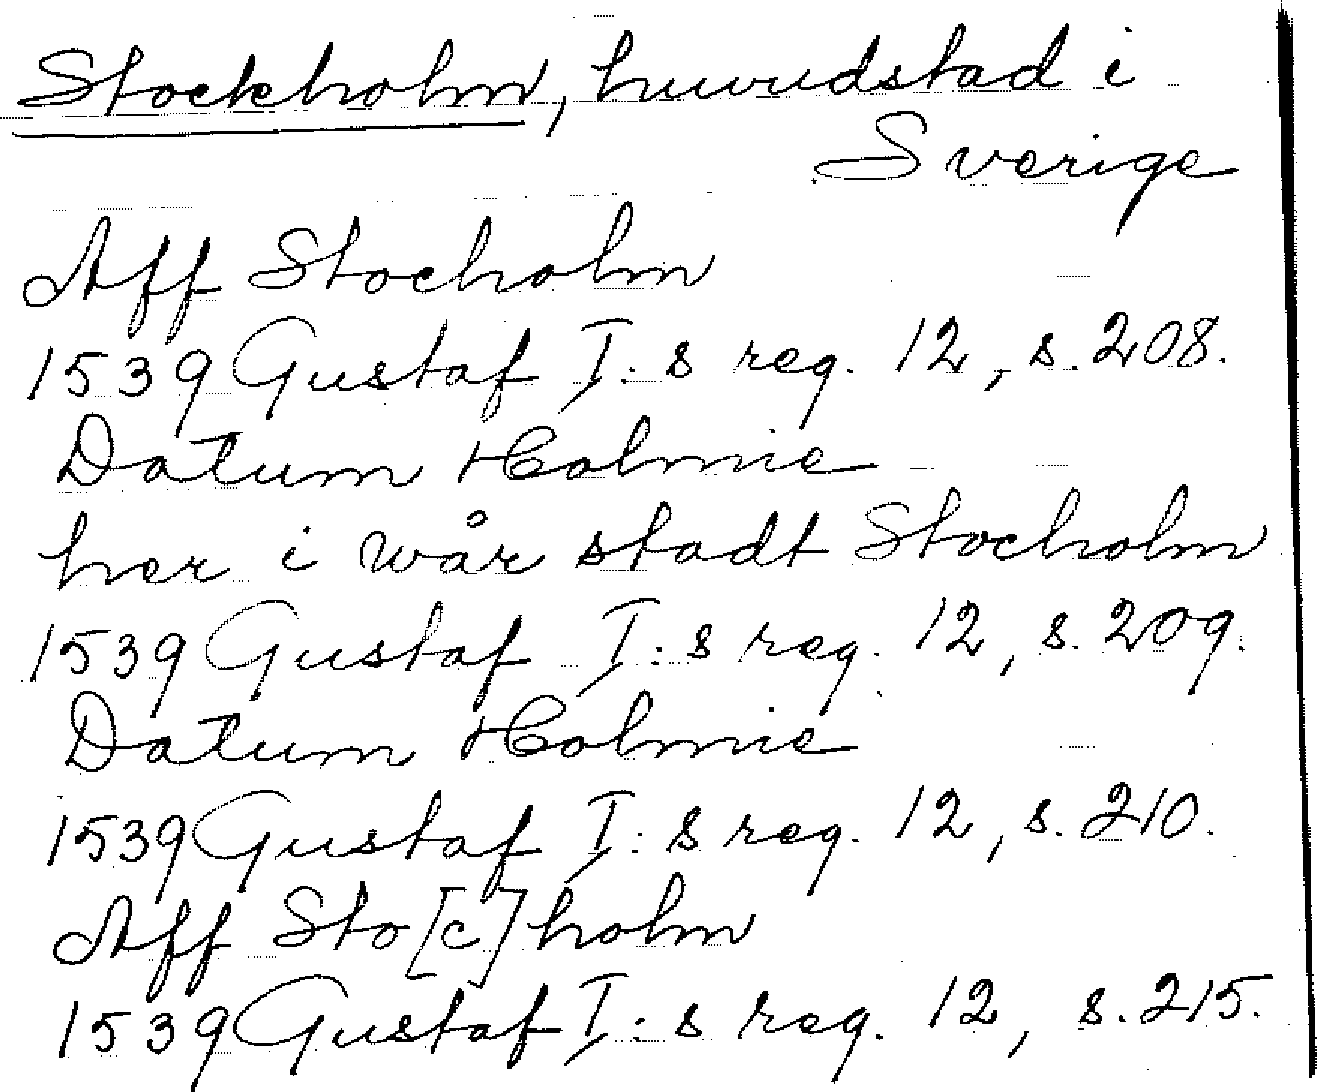 Stockholm, huvudstad i
Sverige
Aff Stocholm
1539 Gustaf I:s reg. 12, s. 208.
Datum Holmie
her i wår stadt Stocholm
1539 Gustaf I:s reg. 12, s. 209.
Datum Holmie
1539 Gustaf I:s reg. 12, s. 210.
Aff Sto[c]holm
1539 Gustaf I:s reg. 12, s. 215.